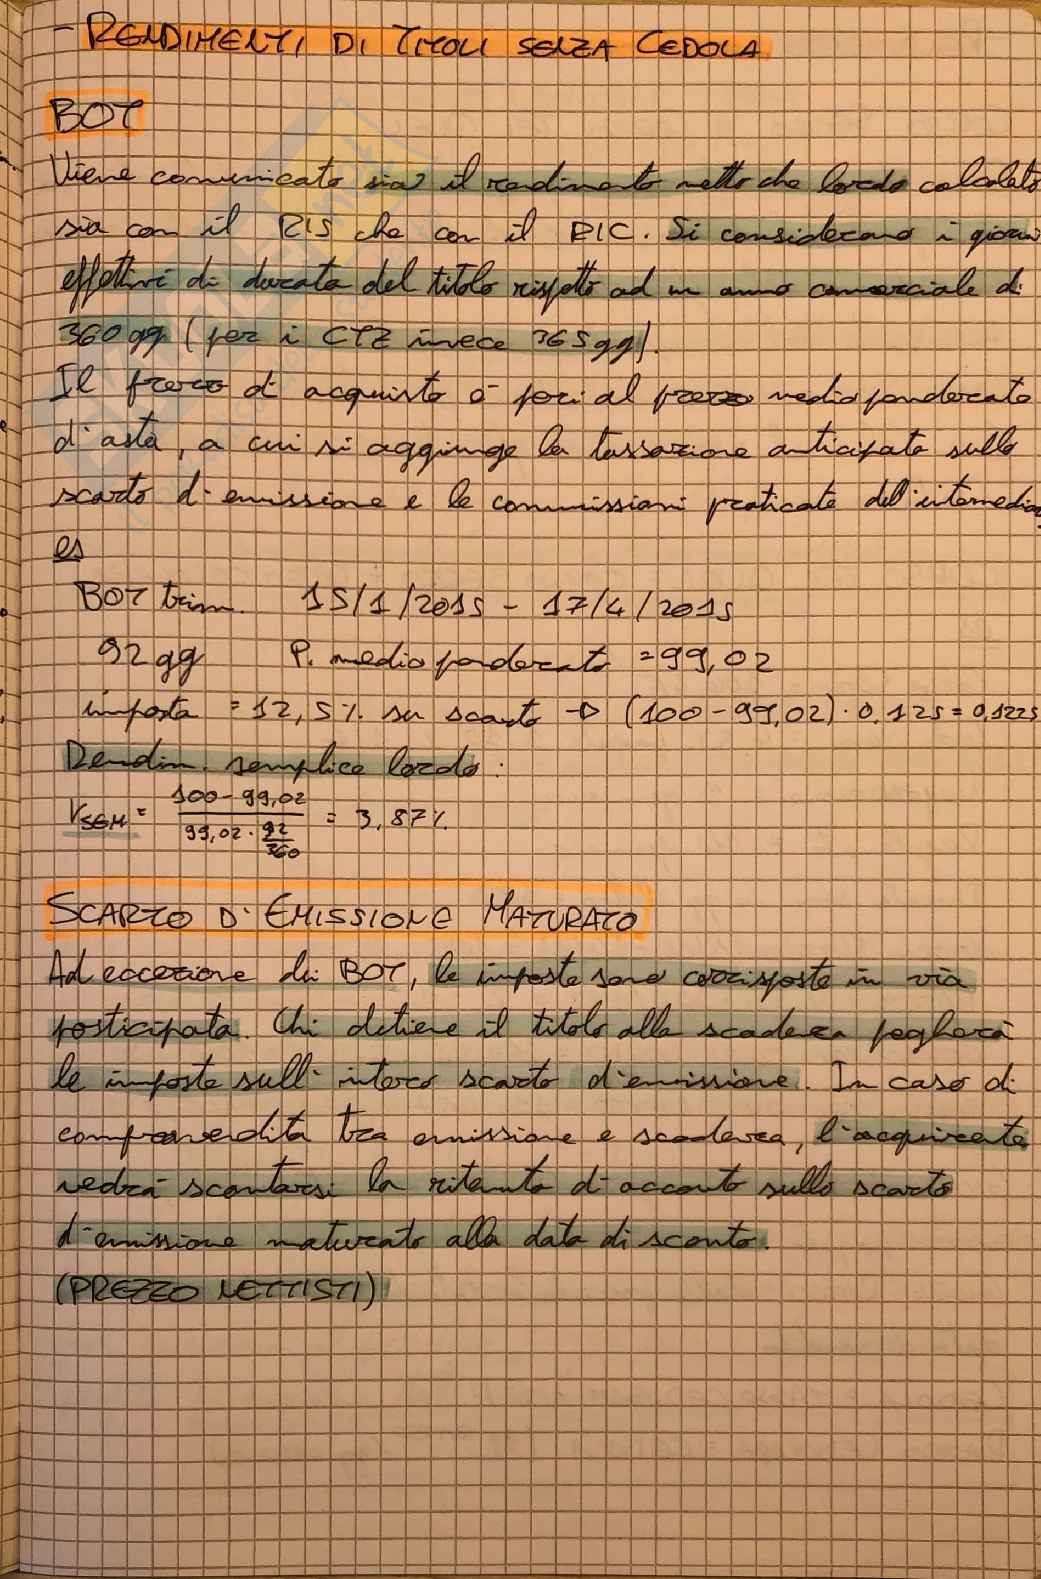 - RENDIMENTI DI TITOLI SENZA CEDOLA
BOT
Viene comunicato sia il rendimento netto che lordo calcolato
sia con il RIS che con il RIC. Si considerano i giorni
effettivi di durata del titolo rispetto ad un anno commerciale di
360 gg (per i CTZ invece 365 gg).
Il prezzo di acquisto è pari al prezzo medio ponderato
d'asta, a cui si aggiunge la tassazione anticipata sullo
scarto di emissione e le commissioni praticate dell'intermediario
es
BOT trim. 15/1/2015 - 17/4/2015
92 gg P. medio ponderato = 99,02
imposta = 12,5% su scarto → (100-99,02)·0,125=0,1225
Rendim. semplice lordo:
rSEM = 100-99,02 / 99,02 · 92/360 = 3,87%
SCARTO D'EMISSIONE MATURATO
Ad eccezione dei BOT, le imposte sono corrisposte in via
posticipata. Chi detiene il titolo alla scadenza pagherà
le imposte sull'intero scarto d'emissione. In caso di
compravendita tra emissione e scadenza, l'acquirente
vedrà scontarsi la ritenuta d'acconto sullo scarto
d'emissione maturato alla data di sconto.
(PREZZO NETTISTI)